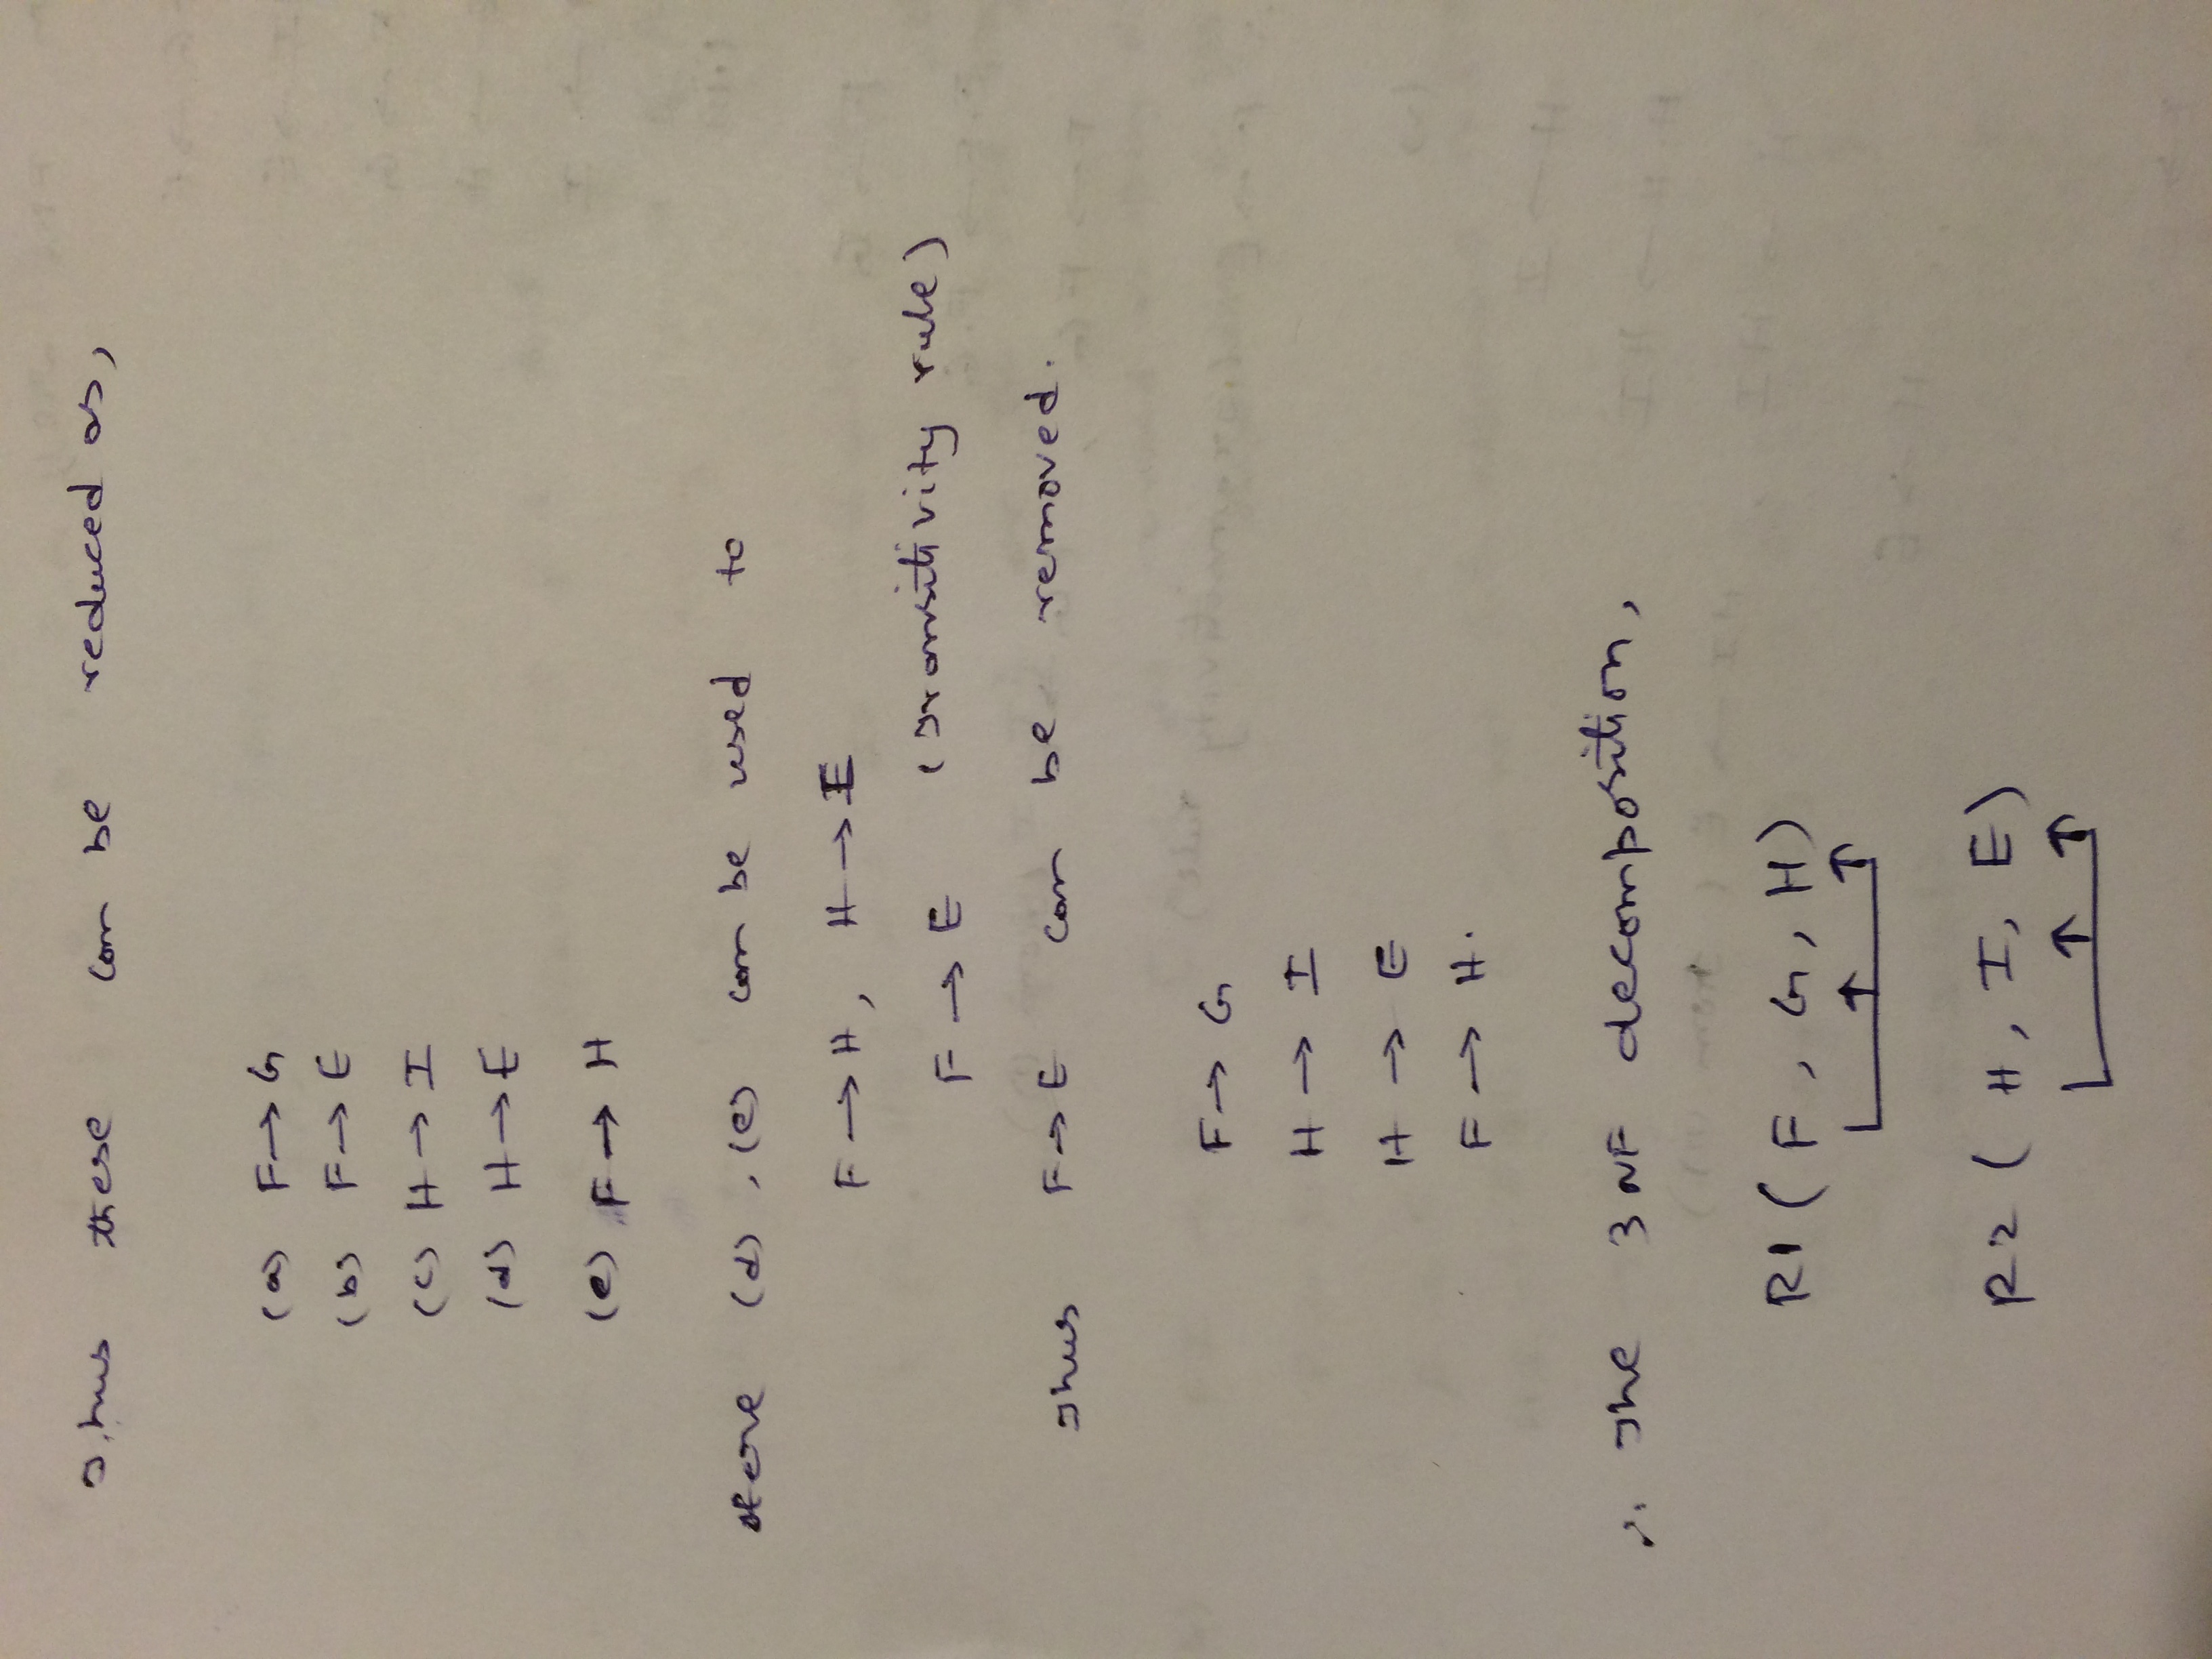 Thus these can be reduced as,
(a) F → G
(b) F → E
(c) H → I
(d) H → E
(e) F → H
Here (d), (e) can be used to
F → H, H → E
F → E (Transitivity rule)
Thus F → E can be removed.
F → G
H → I
H → E
F → H.
∴ The 3NF decomposition,
R1 ( F, G, H)
R2 ( H, I, E)